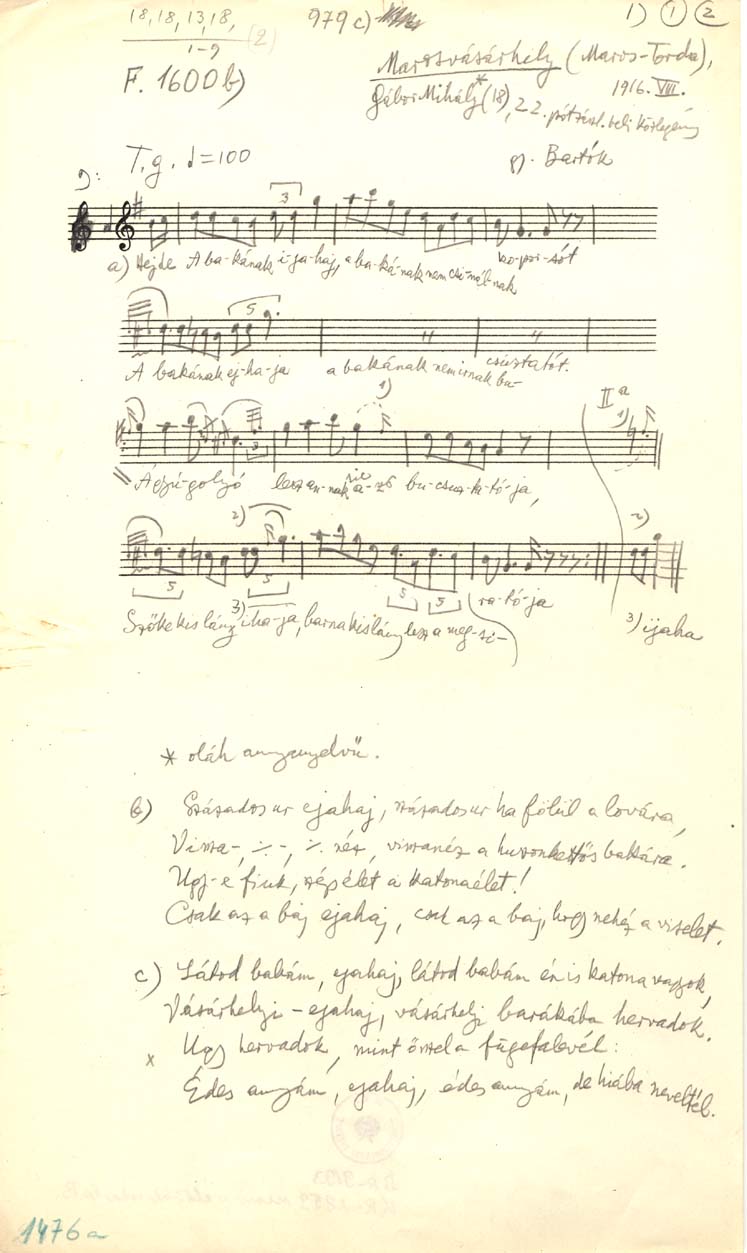 18, 18, 13, 18,
1-9
(2)
979 c)
1) 1 2
F. 1600 b)
Marosvásárhely (Maros-Torda),
Gábor Mihály* (18), 22.
1916. VIII.
T. g. ♩=100
gy. Bartók
a) Hejde A ba-kának i-ja-haj, a ba-ká-nak nem csi-nál-nak ko-por-sót
A bakának ej-ha-ja a bakának nem irnak bu- csuztatót.
Ágyú-golyó lesz an-nak a-ző bu-csuz-ta-tó-ja,
1) II a 1)
2) 2)
Szőke kis lány 3) iha-ja, barna kis lány lesz a meg-si- ra-tó-ja
3) ijaha
* oláh anyanyelvü.
b) Százados ur ejahaj, százados ur ha fölül a lovára,
Vissza-, ⁒-, ⁒ néz, visszanéz a huszonkettős bakára.
Ugy-e fiuk, szép élet a katonaélet!
Csak az a baj ejahaj, csak az a baj, hogy nehéz a viselet.
c) Látod babám, ejahaj, látod babám én is katona vagyok,
Vásárhelyi - ejahaj, vásárhelyi barákába hervadok.
Ugy hervadok, mint őssel a fügefalevél:
x Édes anyám, ejahaj, édes anyám, de hiába neveltél.
1476 a